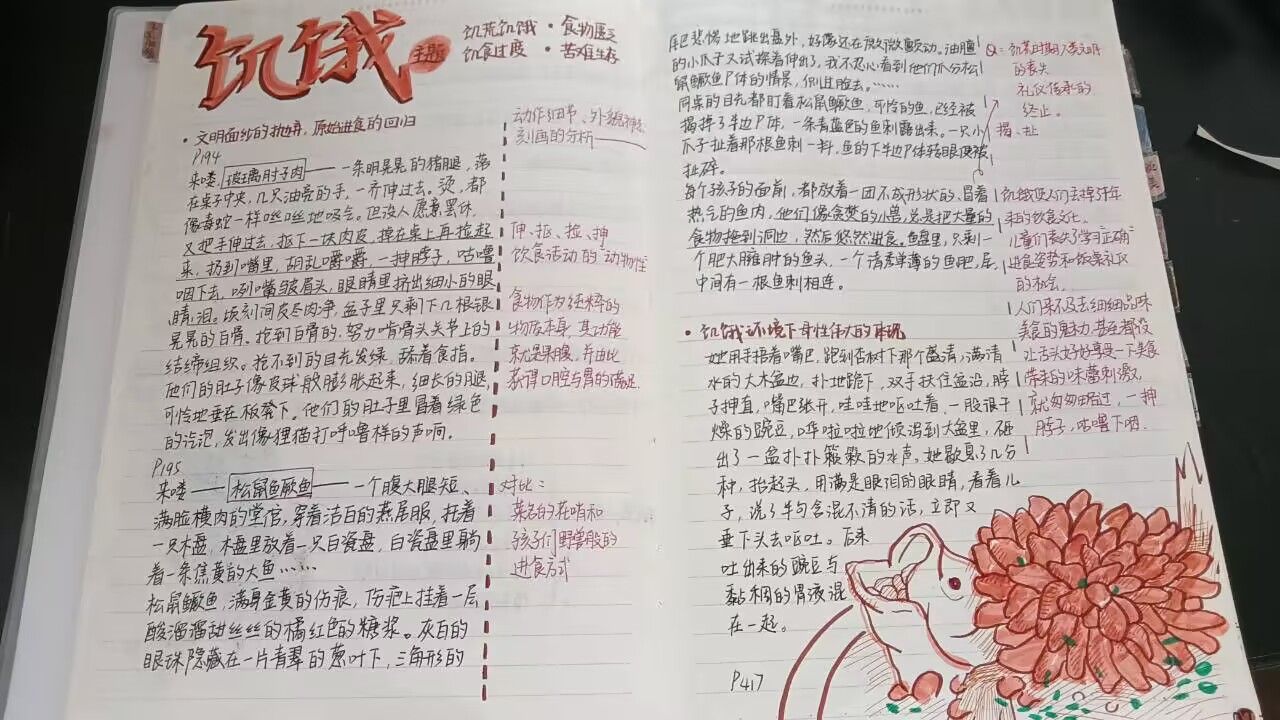 饥饿
主题
饥荒饥饿·食物匮乏
饥食过度·苦难生存
·文明面纱的抛弃，原始进食的回归
P194
来喽——玻璃肘子肉——一条明晃晃的猪腿，落
在桌子中央，几只油亮的手，一齐伸过去。烫，都
像毒蛇一样咝咝地吸气。但没人愿意罢休，
又把手伸过去，抠下一块肉皮，掉在桌上再捡起
来，扔到嘴里，胡乱嚼嚼，一抻脖子，咕噜
咽下去，咧嘴皱眉头，眼睛里挤出细小的眼
睛泪。顷刻间皮尽肉净，盆子里只剩下几根银
晃晃的白骨。抢到白骨的，努力啃骨头关节上的
结缔组织。抢不到的目光发绿，舔着食指。
他们的肚子像皮球般膨胀起来，细长的腿，
可怜地垂在板凳下。他们的肚子里冒着绿色
的汽泡，发出像狸猫打呼噜样的声响。
P195
来喽——松鼠鱼鳜鱼——一个腹大腿短、
满脸横肉的堂倌，穿着洁白的燕尾服，托着
一只木盘，木盘里放着一只白瓷盘，白瓷盘里躺
着一条焦黄的大鱼……
松鼠鳜鱼，满身金黄的伤痕，伤疤上挂着一层
酸溜溜甜丝丝的橘红色的糖浆。灰白的
眼珠隐藏在一片青翠的葱叶下，三角形的
动作细节、外貌神态
刻画的分析
伸、抠、捡、抻
饮食活动的“动物性”
食物作为纯粹的
物质本身，其功能
就是果腹，并由此
获得口腔与胃的满足
对比：
菜名的花哨和
孩子们野兽般的
进食方式
尾巴悲愤地跳出盘外，好像还在微微颤动。油腥
的小爪子又试探着伸出了，我不忍心看到他们瓜分松
鼠鳜鱼尸体的情景，侧过脸去。……
同桌的目光都盯着松鼠鳜鱼，可怜的鱼，已经被
揭掉了半边尸体，一条青蓝色的鱼刺露出来。一只小
爪子扯着那根鱼刺一抖，鱼的下半边尸体转眼便被
扯碎。
每个孩子的面前，都放着一团不成形状的、冒着
热气的鱼肉，他们像贪婪的小兽，总是把大量的
食物拖到洞边，然后悠然进食。鱼盘里，只剩一
个肥大臃肿的鱼头，一个清秀单薄的鱼肥，层
中间有一根鱼刺相连。
Q：饥荒时期人类文明
的丧失
礼仪传承的
终止。
揭、扯
饥饿使人们丢掉多年
来的饮食文化。
儿童们丧失了学习正确
进食姿势和饭桌礼仪
的机会。
人们来不及去细细品味
美食的魅力，甚至都没
让舌头好好享受一下美食
带来的味蕾刺激，
就匆匆略过，一抻
脖子，咕噜下咽。
·饥饿环境下母性伟大的体现
她用手捂着嘴巴，跑到杏树下那个盛满清
水的大木盆边，扑地跪下，双手扶住盆沿，脖
子抻直，嘴巴张开，哇哇地呕吐着，一股很干
燥的豌豆，哗啦啦地倾泻到木盆里，砸
出了一盆扑扑簌簌的水声。她歇息了几分
钟，抬起头，用满是眼泪的眼睛，看着儿
子，说了半句含混不清的话，立即又
垂下头去呕吐。后来
吐出来的豌豆与
黏稠的胃液混
在一起。
P417